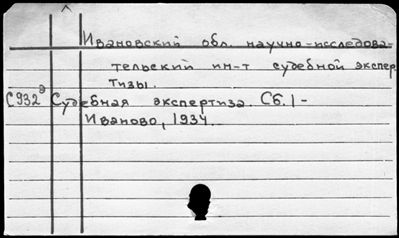 Ивановский обл. научно-исследова-
тельский ин-т судебной экспер
тизы.
С932э Судебная экспертиза. Сб. 1-
Иваново, 1934.